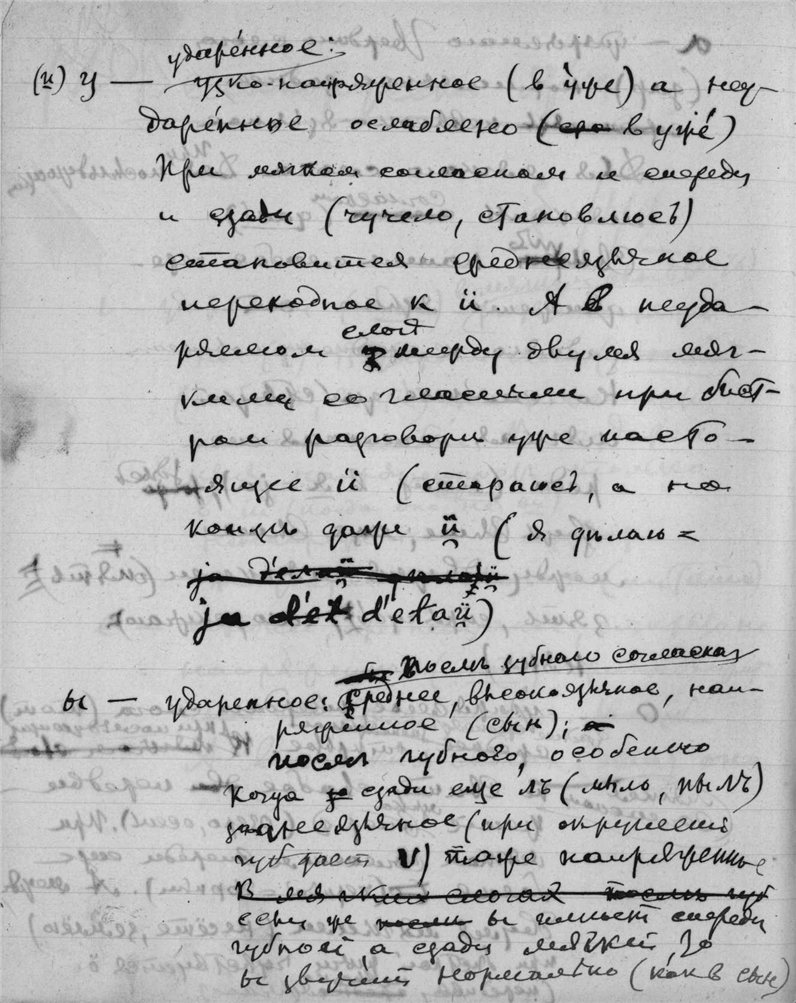 ударе́нное:
(и) у — узко-напряженное (в уже) а неу-
даре́нное ослаблено (в уже́)
При мягком согласном и спереди
и сзади (чучело, становлюсь)
становится среднеязычное
переходное к ü. А в неуда-
ряемом слог между двумя мяг-
кими согласными при быст-
ром разговоре уже насто-
ящее ü (стараюсь, а на
концъ даже ü (я дѣлаю =
ja d'éł d'ełaü)
послѣ зубного согласнаго
ы — ударенное: среднее, высокоязычное, нап-
ряженное (сын); а
послѣ губного, особенно
когда сзади еще лъ (мылъ, пылъ)
заднеязычное (при округленiи
губ дает V) тоже напряженные
В мягких слогах послѣ губ
если же послѣ ы имѣет спереди
губной а сзади мягкiй то
ы звучит нормально (как в сын)